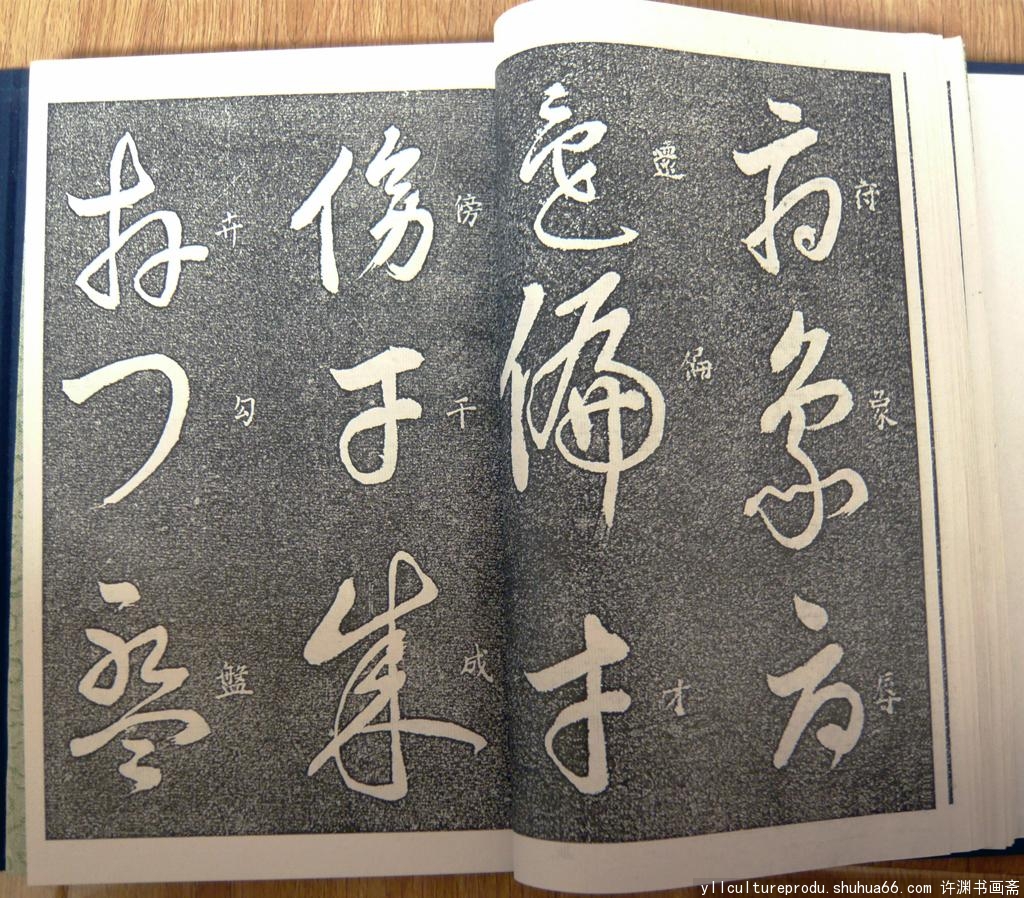 府 象 辱
還 偏 才
傍 干 成
卉 勾 盤
yllcultureprodu.shuhua66.com 许渊书画斋